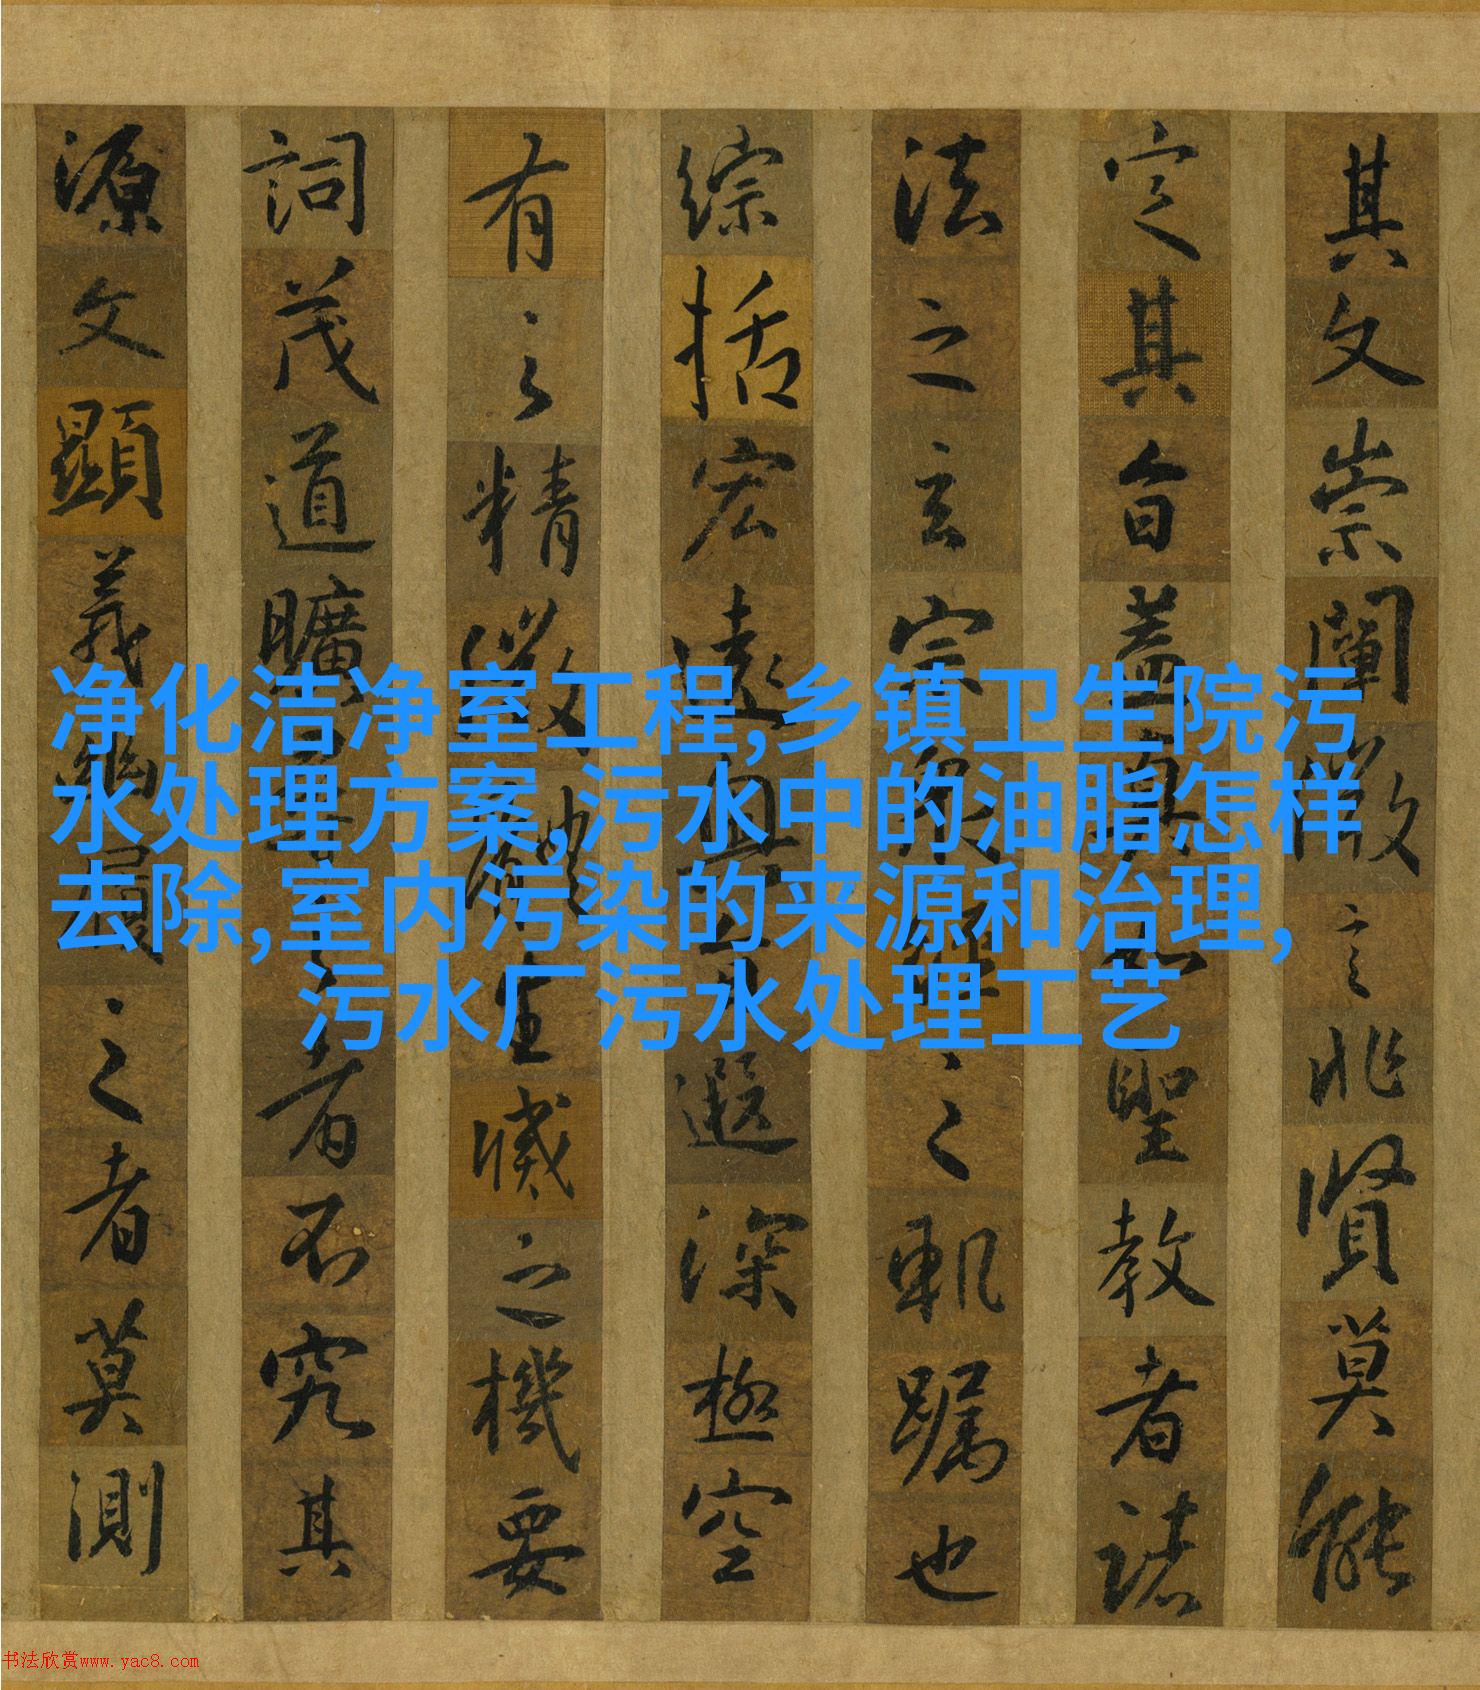 其文崇闡微言非賢莫能
定其旨蓋真如聖教者諸
法之玄宗眾經之軌躅也
綜括宏遠奧旨遐深極空
有之精微體生滅之機要
詞茂道曠尋之者不究其
源文顯義幽履之者莫測
净化洁净室工程,乡镇卫生院污
水处理方案,污水中的油脂怎样
去除,室内污染的来源和治理,
污水厂污水处理工艺
书法欣赏www.yac8.com